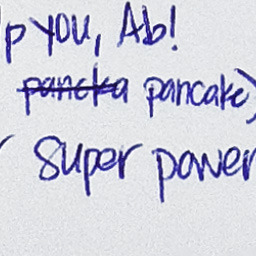 p you, Ab!
pancka pancake)
super power